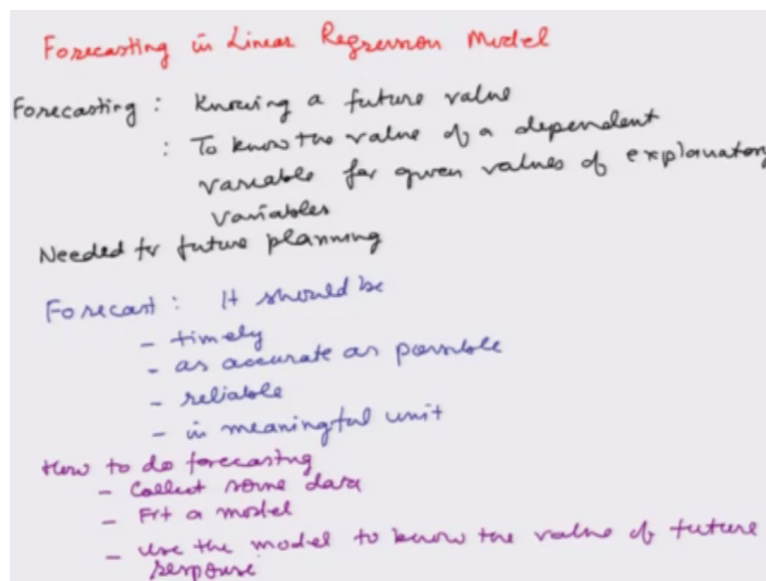 Forecasting in Linear Regression Model
Forecasting : Knowing a future value
: To know the value of a dependent
variable for given values of explanatory
variables
Needed for future planning
Forecast : It should be
- timely
- as accurate as possible
- reliable
- in meaningful unit
How to do forecasting
- Collect some data
- Fit a model
- Use the model to know the value of future
response